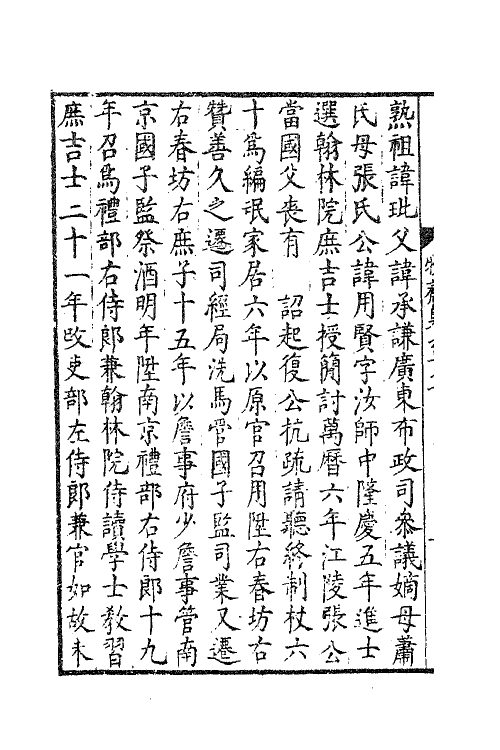 熟祖諱玭父諱承謙廣東布政司叅議嫡母蕭
氏母張氏公諱用賢字汝師中隆慶五年進士
選翰林院庶吉士授簡討萬曆六年江陵張公
當國父喪有　詔起復公抗疏請聽終制杖六
十爲編氓家居六年以原官召用陞右春坊右
贊善久之遷司經局洗馬管國子監司業又遷
右春坊右庶子十五年以詹事府少詹事管南
京國子監祭酒明年陞南京禮部右侍郎十九
年召爲禮部右侍郎兼翰林院侍讀學士教習
庶吉士二十一年改吏部左侍郎兼官如故未